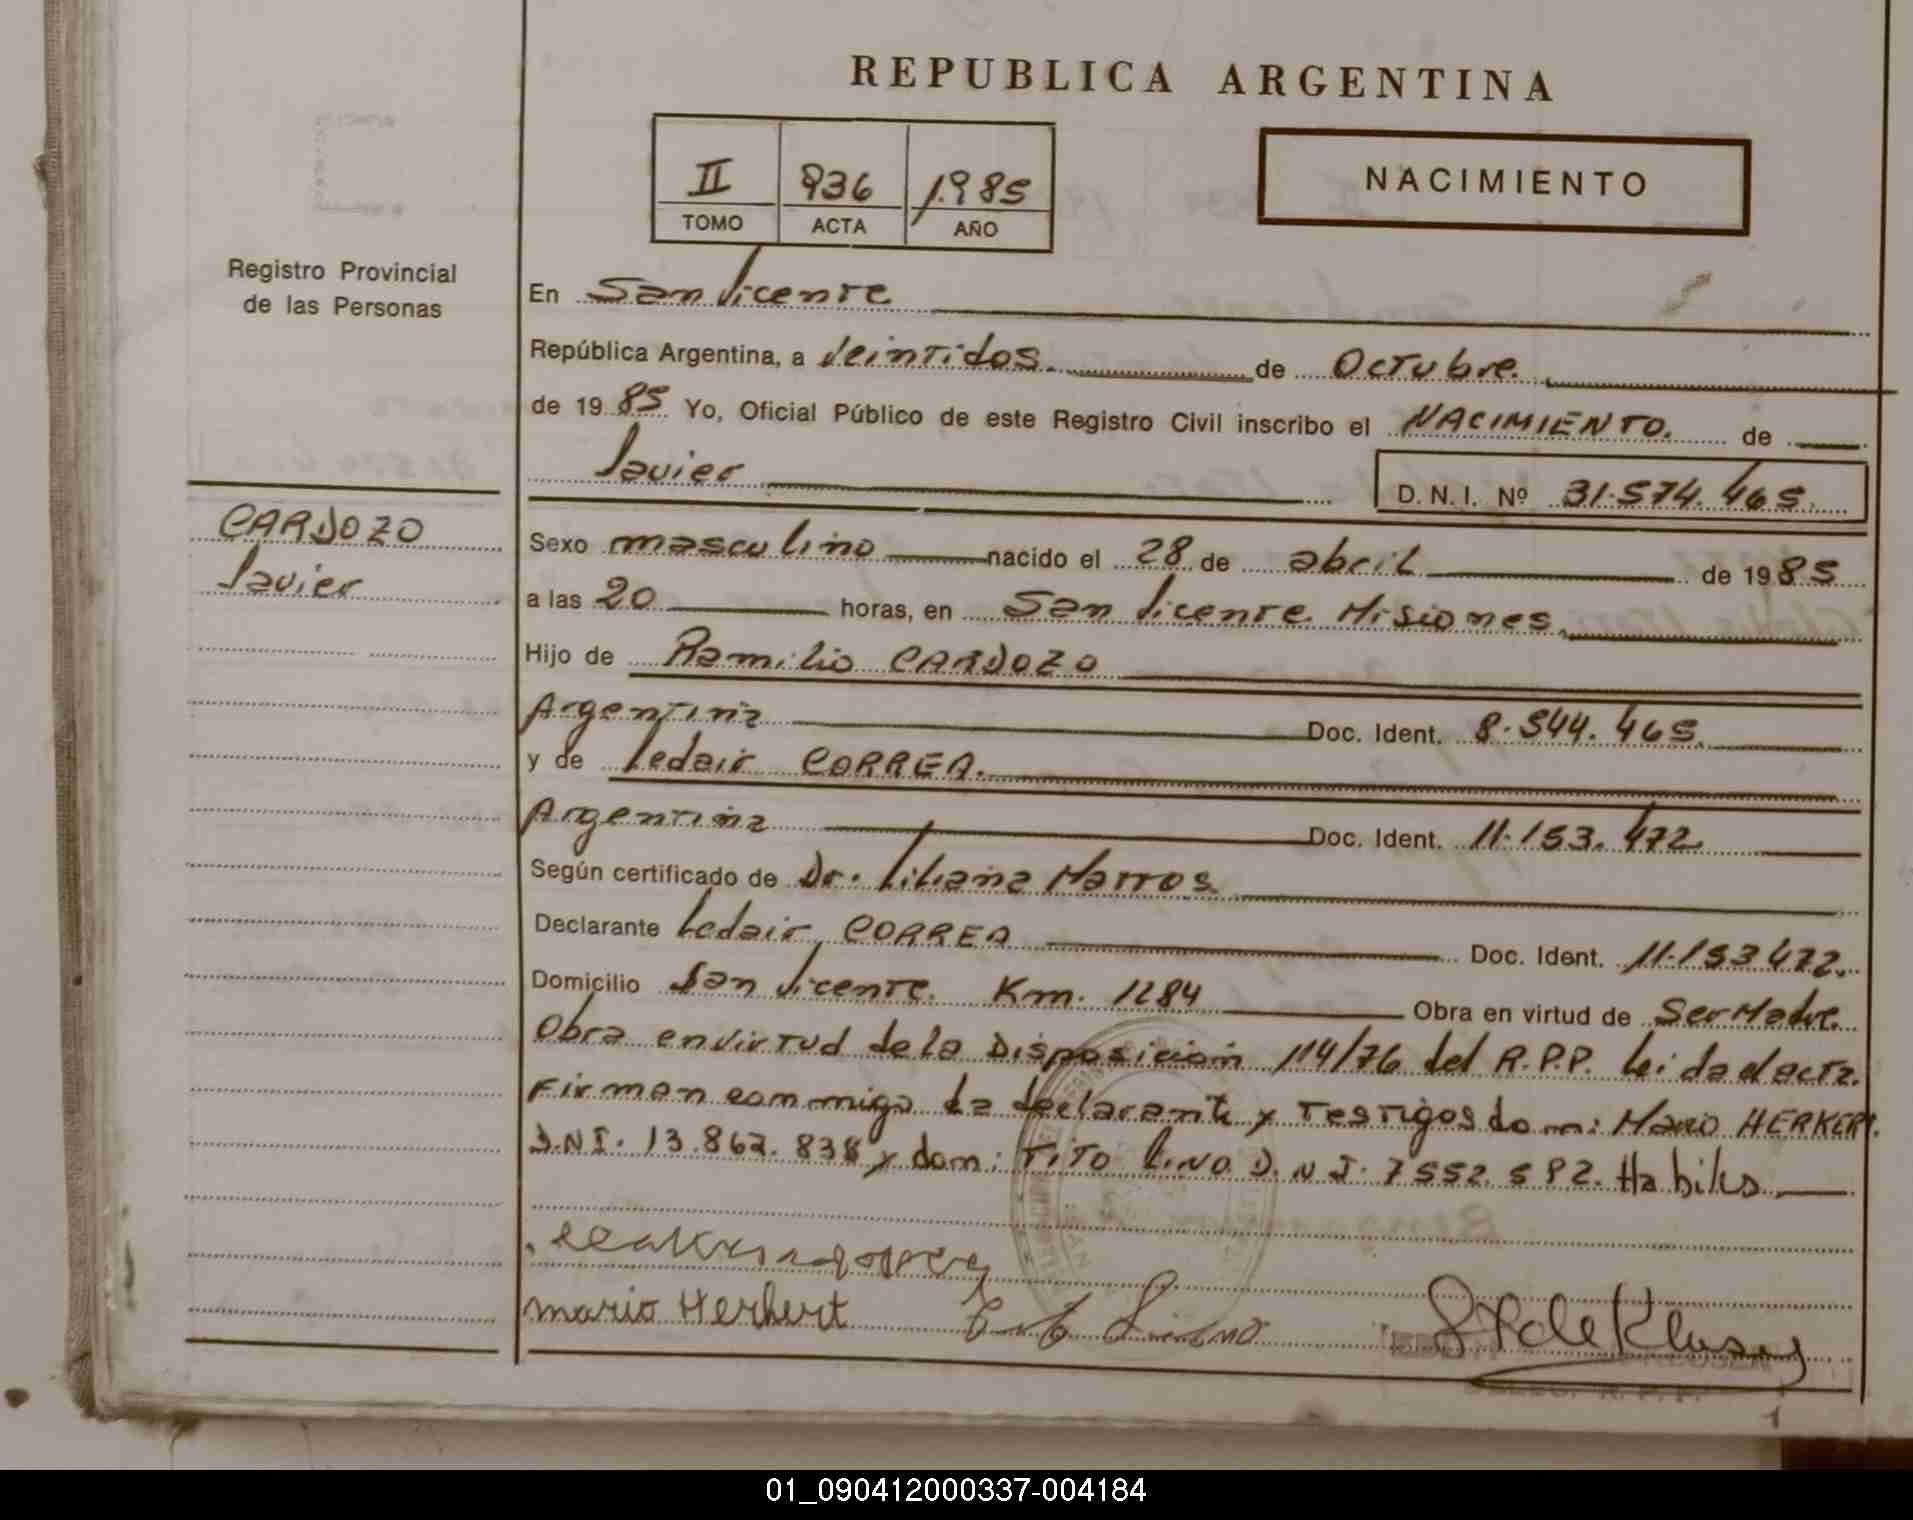 REPUBLICA ARGENTINA
II 936 1.985
TOMO ACTA AÑO
NACIMIENTO
Registro Provincial
de las Personas
CARDOZO
Javier
En San Vicente
República Argentina, a Veintidos. de Octubre.
de 19 85 Yo, Oficial Público de este Registro Civil inscribo el NACIMIENTO. de
Javier D. N. I. Nº 31.574.465.
Sexo masculino nacido el 28 de abril de 19 85
a las 20 horas, en San Vicente Misiones.
Hijo de Ramilio CARDOZO
Argentina Doc. Ident. 8.544.465.
y de Ledair CORREA.
Argentina Doc. Ident. 11.153.472.
Según certificado de Dr. Liliana Marros.
Declarante Ledair CORREA Doc. Ident. 11.153 472.
Domicilio San Vicente. Km. 1284 Obra en virtud de Ser Madre.
Obra en virtud de la Disposicion 114/76 del R.P.P. Leida el acta.
Firman conmigo la declarante y Testigos dom: Mario HERKERT.
D.N.I. 13.862.838 y dom: TITO Lino D.N.I. 7552.582. Habiles.
Mario Herkert
01_090412000337-004184